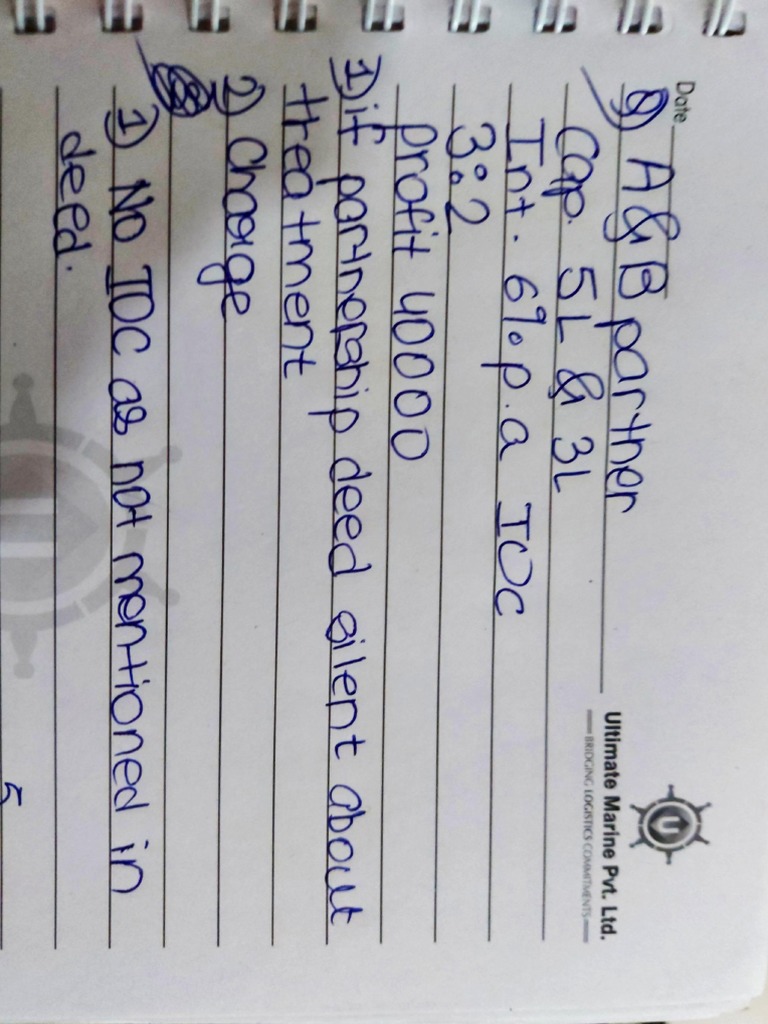 Date
Ultimate Marine Pvt. Ltd.
BRIDGING LOGISTICS COMMITMENTS
Q) A & B partner
Cap. 5L & 3L
Int. 6% p.a IOC
3:2
profit 40000
1) if partnership deed silent about
treatment
2) Charge
1) No IOC as not mentioned in
deed.
5